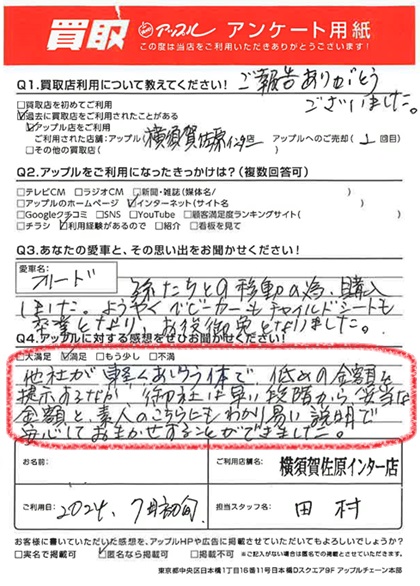 買取 アップル アンケート用紙
この度は当店をご利用いただきありがとうございます！
Q1.買取店利用について教えてください！
ご報告ありがとう
ございました。
□買取店を初めてご利用
☑過去に買取店をご利用されたことがある
☑アップル店をご利用
ご利用された店舗：アップル(横須賀佐原インター店 アップルへのご売却( 1 回目)
□その他の買取店( )
Q2.アップルをご利用になったきっかけは？(複数回答可)
□テレビCM □ラジオCM □新聞・雑誌(媒体名/ )
□アップルのホームページ ☑インターネット(サイト名 )
□Googleクチコミ □SNS □YouTube □顧客満足度ランキングサイト( )
□チラシ ☑利用経験があるので □紹介 □看板を見て
Q3.あなたの愛車と、その思い出をお聞かせください！
愛車名：
フリード
孫たちとの移動の為、購入
しました。ようやくベビーカーもチャイルドシートも
卒業となり、お役御免となりました。
Q4.アップルに対する感想をぜひお聞かせください！
□大満足 ☑満足 □もう少し □不満
他社が軽くあしらう体で、低めの金額を
提示あるなか、御社は早い段階から妥当な
金額と、素人のこちらにもわかり易い説明で
安心しておまかせすることができました。
お名前：
ご利用店舗名：
横須賀佐原インター店
ご利用日：
2024. 7月初旬
担当スタッフ名：
田村
お客様に書いていただいた感想を、アップルHPや広告に掲載させていただいてもよろしいでしょうか？
□実名で掲載可 ☑匿名なら掲載可 □掲載不可 ※ご記入がない場合は匿名での掲載とさせていただきます。
東京都中央区日本橋1丁目16番11号日本橋Dスクエア9F アップルチェーン本部